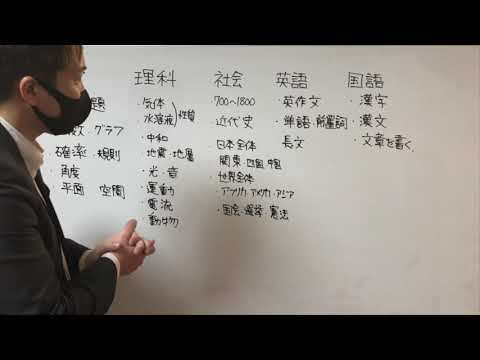 理科 社会 英語 国語
題
数 グラフ
確率・規則
・角度
平面 空間
・気体
・水溶液 性質
・中和
・地震・地層
・光・音
・運動
・電流
・動物
・700〜1800
・近代史
・日本全体
関東・四国・中国
・世界全体
・アフリカ・アメリカ・アジア
・国会・選挙・憲法
・英作文
・単語・前置詞
長文
・漢字
・漢文
・文章を書く